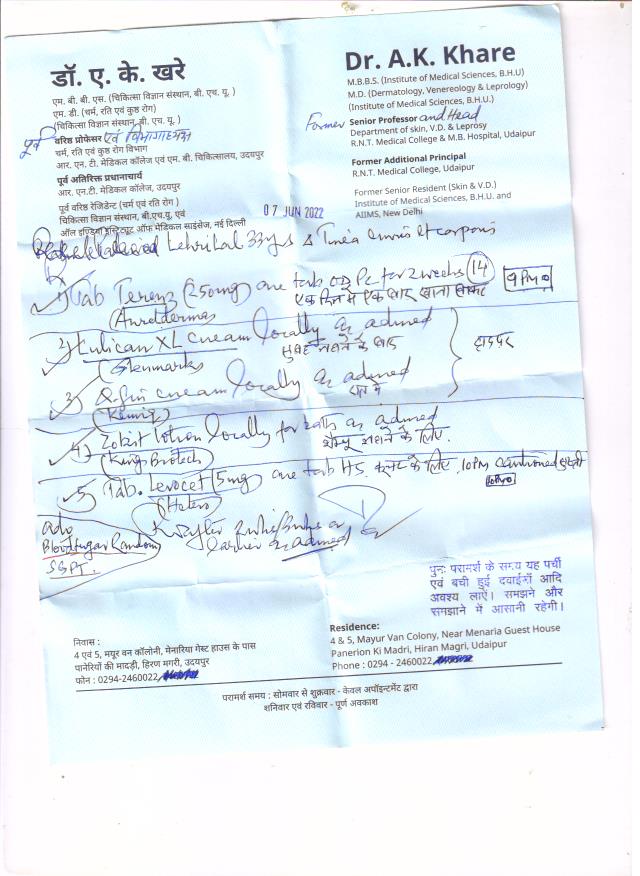 डॉ. ए. के. खरे
एम. बी. बी. एस. (चिकित्सा विज्ञान संस्थान, बी. एच. यू. )
एम. डी. (चर्म, रति एवं कुष्ठ रोग)
(चिकित्सा विज्ञान संस्थान, बी. एच. यू. )
पूर्व वरिष्ठ प्रोफेसर एवं विभागाध्यक्ष
चर्म, रति एवं कुष्ठ रोग विभाग
आर. एन. टी. मेडिकल कॉलेज एवं एम. बी. चिकित्सालय, उदयपुर
पूर्व अतिरिक्त प्रधानाचार्य
आर. एन.टी. मेडिकल कॉलेज, उदयपुर
पूर्व वरिष्ठ रेजिडेन्ट (चर्म एवं रति रोग )
चिकित्सा विज्ञान संस्थान, बी.एच.यू. एवं
ऑल इण्डिया इन्स्टिट्यूट ऑफ मेडिकल साइंसेज, नई दिल्ली
Dr. A.K. Khare
M.B.B.S. (Institute of Medical Sciences, B.H.U)
M.D. (Dermatology, Venereology & Leprology)
(Institute of Medical Sciences, B.H.U.)
Former Senior Professor and Head
Department of skin, V.D. & Leprosy
R.N.T. Medical College & M.B. Hospital, Udaipur
Former Additional Principal
R.N.T. Medical College, Udaipur
Former Senior Resident (Skin & V.D.)
Institute of Medical Sciences, B.H.U. and
AIIMS, New Delhi
07 JUN 2022
33yrs Tinea cruris et corporis
1) Tab (250mg) one tab OD PC for 2 weeks (14) 9 PM
एक दिन में एक बार खाना खाकर
2) Lulican XL cream locally as advised
सुबह नहाने के बाद
(Glenmark)
3) cream locally as advised
रात में
4) lotion locally for bath as advised
(King Biotech)
5) Tab. Levocet (5mg) one tab HS 10PM
(Hetero)
10PM
adv
Blood Sugar Random
SGPT.
R after 2 whs/3whs or
earlier as advised
पुनः परामर्श के समय यह पर्ची
एवं बची हुई दवाईयाँ आदि
अवश्य लाऐं। समझने और
समझाने में आसानी रहेगी।
निवास :
4 एवं 5, मयूर वन कॉलोनी, मेनारिया गेस्ट हाउस के पास
पानेरियों की मादड़ी, हिरण मगरी, उदयपुर
फोन : 0294-2460022
Residence:
4 & 5, Mayur Van Colony, Near Menaria Guest House
Panerion Ki Madri, Hiran Magri, Udaipur
Phone : 0294 - 2460022
परामर्श समय : सोमवार से शुक्रवार - केवल अपॉइन्टमेंट द्वारा
शनिवार एवं रविवार - पूर्ण अवकाश